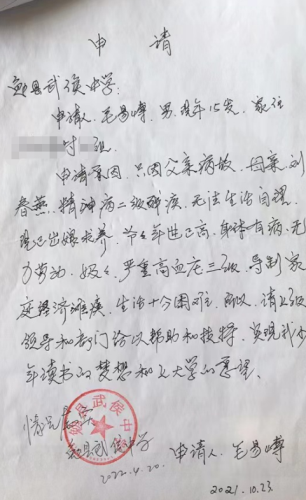 申 请
勉县武侯中学:
申请人, 毛易嶂, 男, 现年15岁, 家住
村一组.
申请原因, 只因父亲病故, 母亲, 刘
春燕, 精神病二级残疾, 无法生活自理,
现已出嫁求养, 爷爷年世已高, 身体有病, 无
力劳动, 奶奶, 严重高血压三级, 导制家
庭经济难, 生活十分困难, 所以, 请上级
领导和部门给以帮助和扶持, 实现我少
年读书的梦想和上大学的愿望、
情况属实
勉县武侯中学
2022.4.20.
申请人 毛易嶂
2021.10.23.